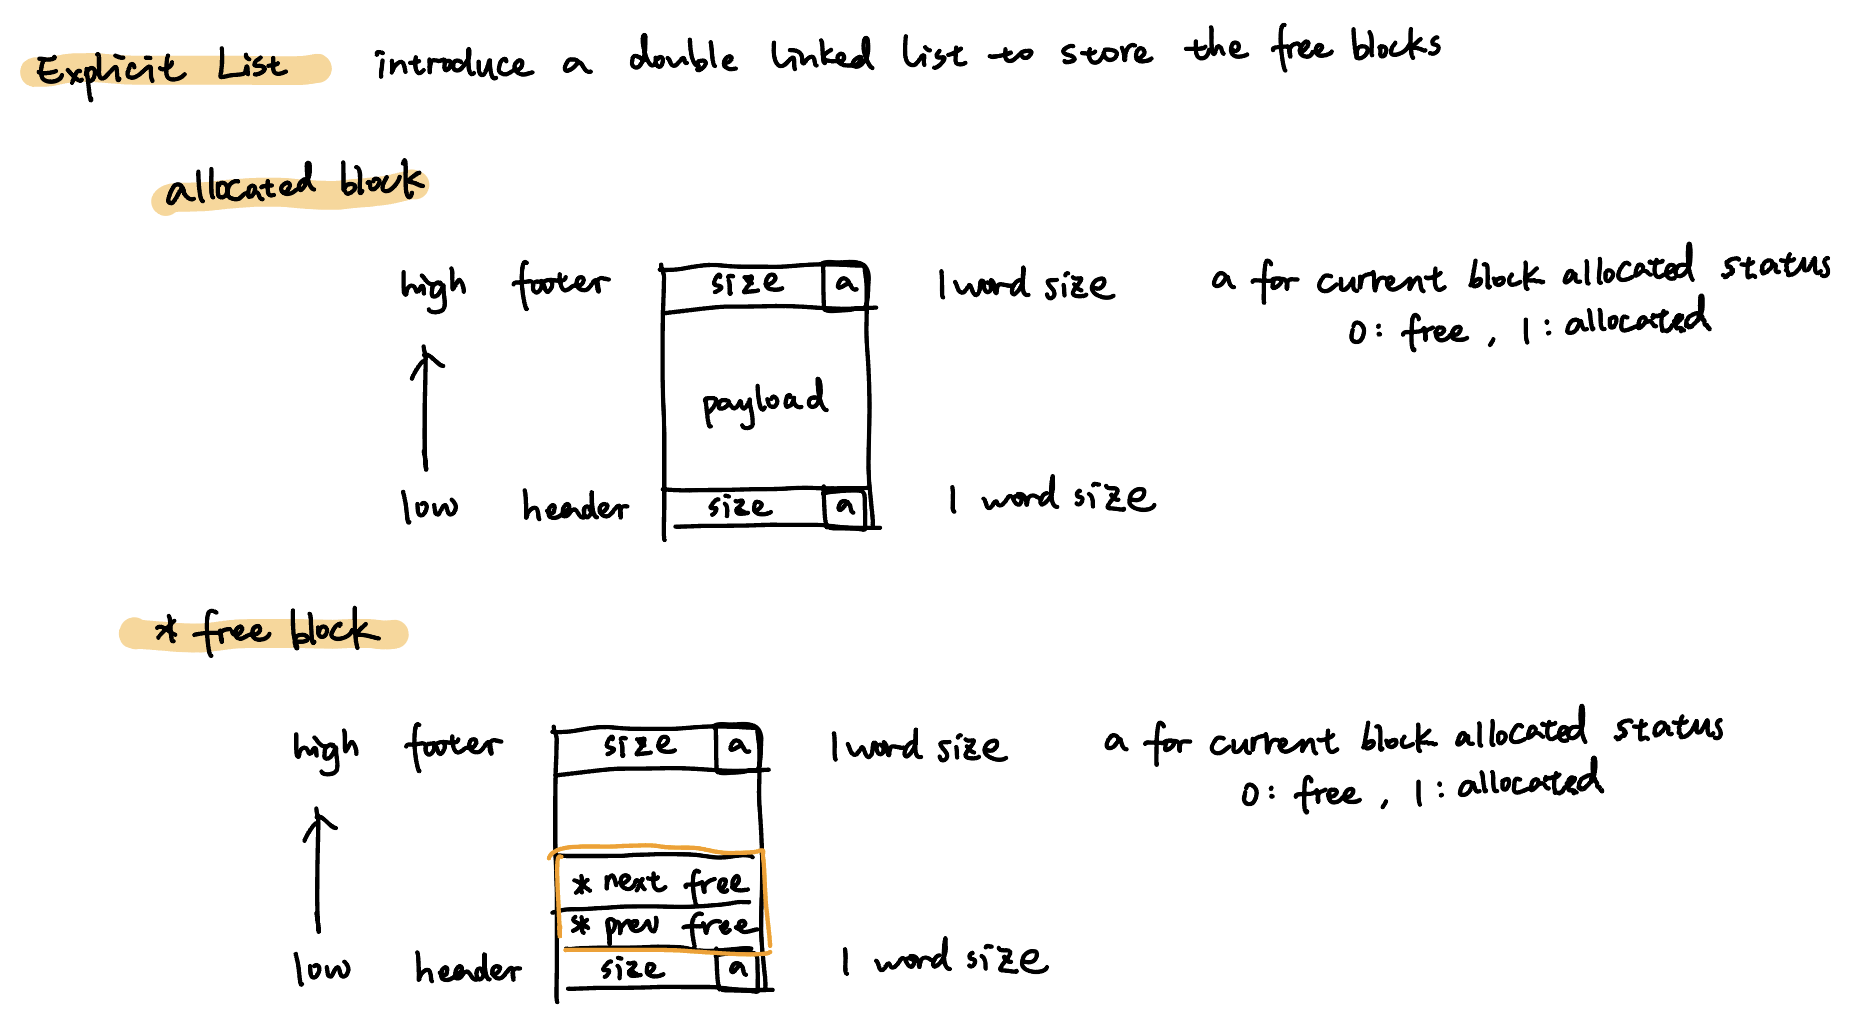 Explicit List introduce a double linked list to store the free blocks
allocated block
high footer size a 1 word size a for current block allocated status
0: free, 1: allocated
payload
low header size a 1 word size
* free block
high footer size a 1 word size a for current block allocated status
0: free, 1: allocated
* next free
* prev free
low header size a 1 word size